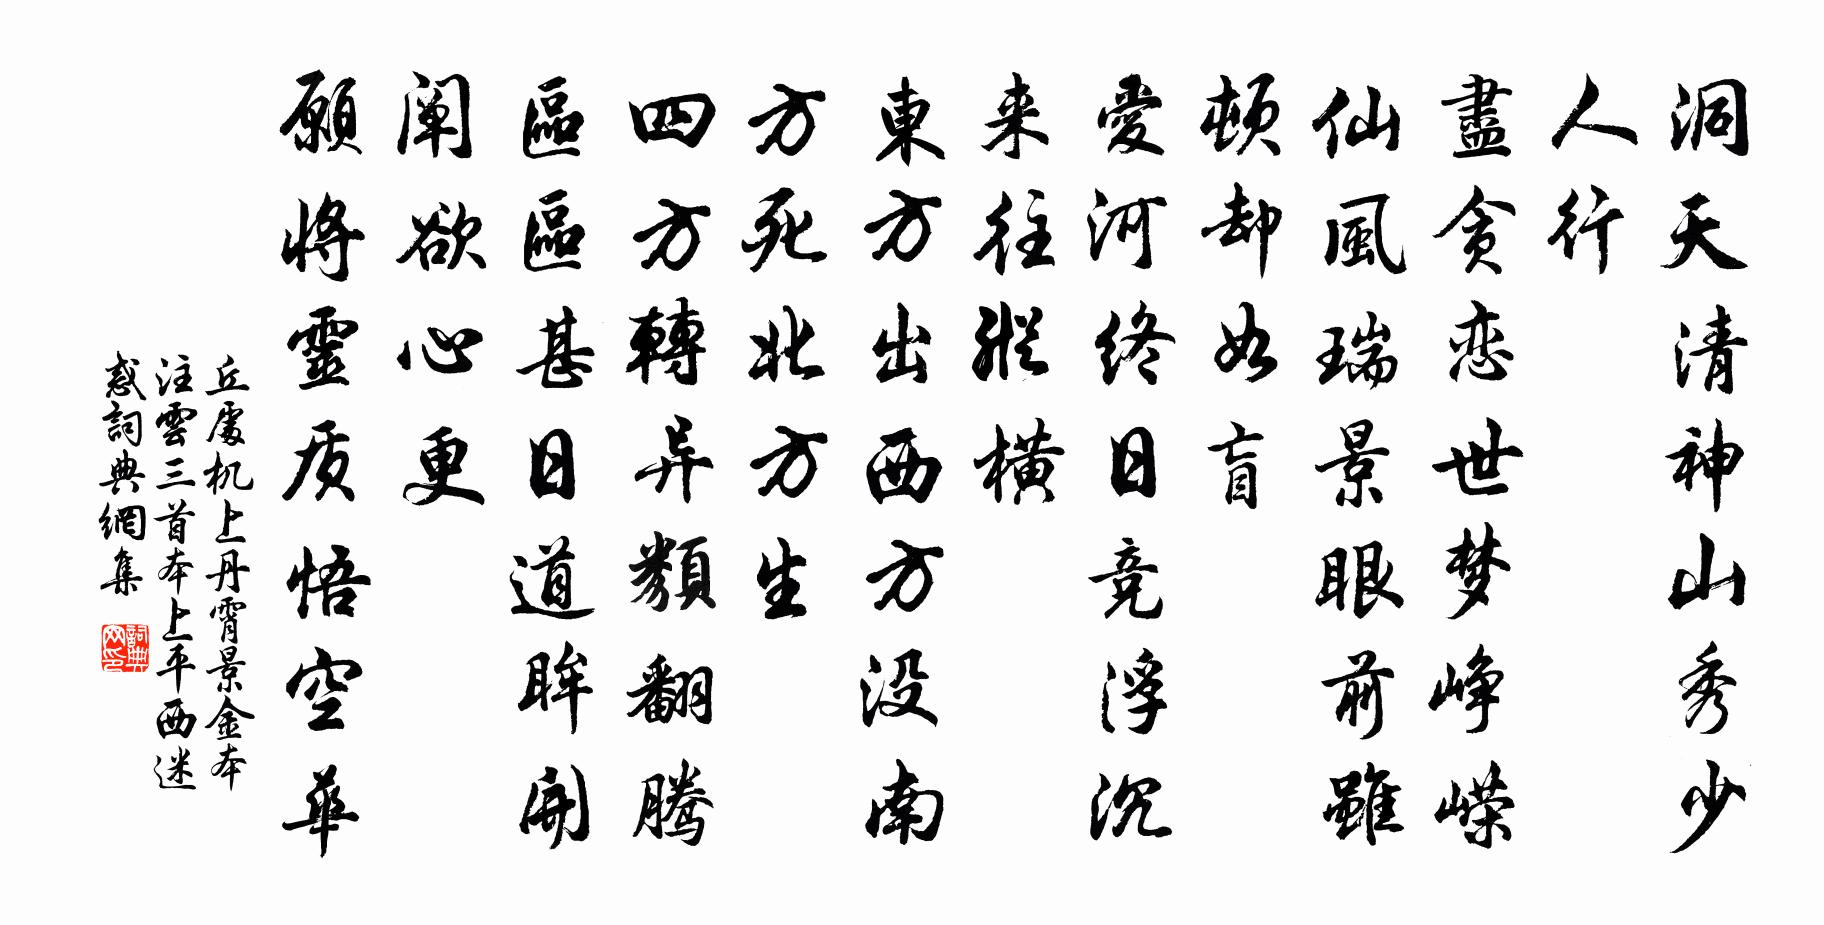 洞天清神山秀少
人行
盡贪恋世梦峥嵘
仙風瑞景眼前雖
頓却如盲
愛河终日竞浮沉
来往縱横
東方出西方没南
方死北方生
四方轉异類翻騰
區區甚日道眸開
阐欲心更
願将靈质悟空華
丘處机上丹霄景金本
注雲三首本上平西迷
惑詞典網集
詞典网印